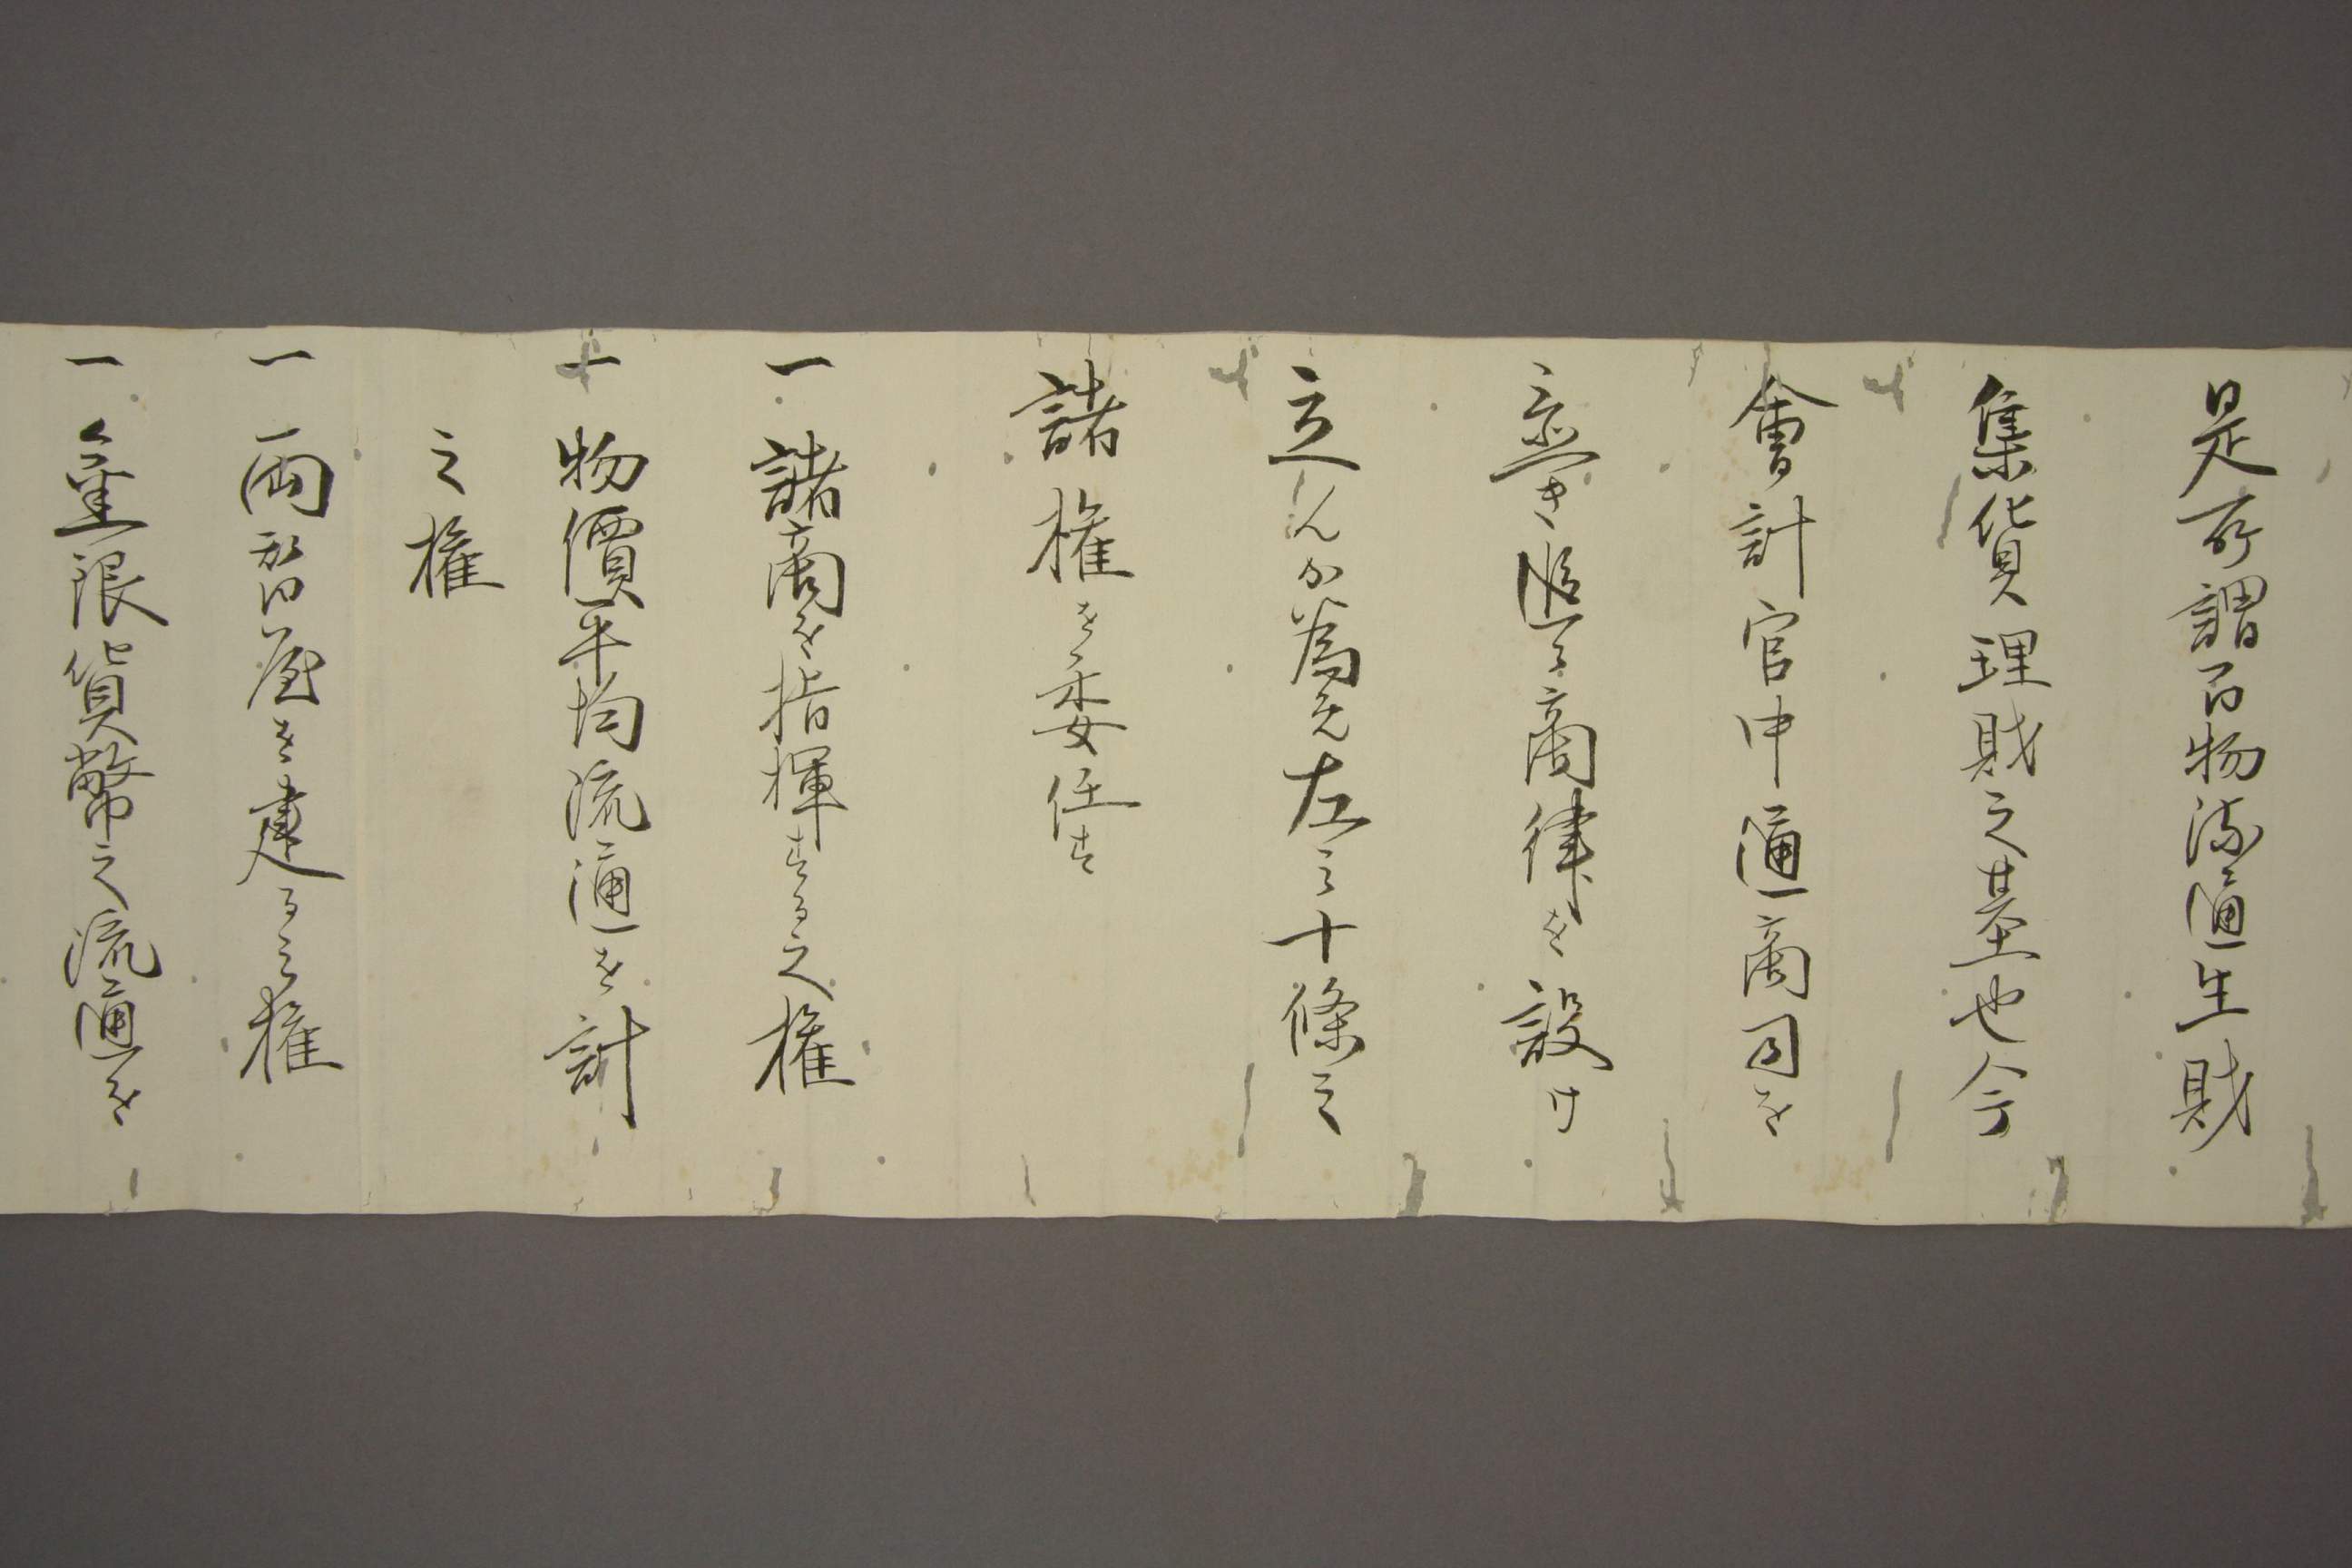 是所謂百物流通生財
集貨理財之基也今
會計官中通商司を
置き追て商律を設け
立んか為め左之十條之
諸権を委任す
一 諸商を指揮する之権
一 物價平均流通を計
之権
一 両替屋を建る之権
一 金銀貨幣之流通を